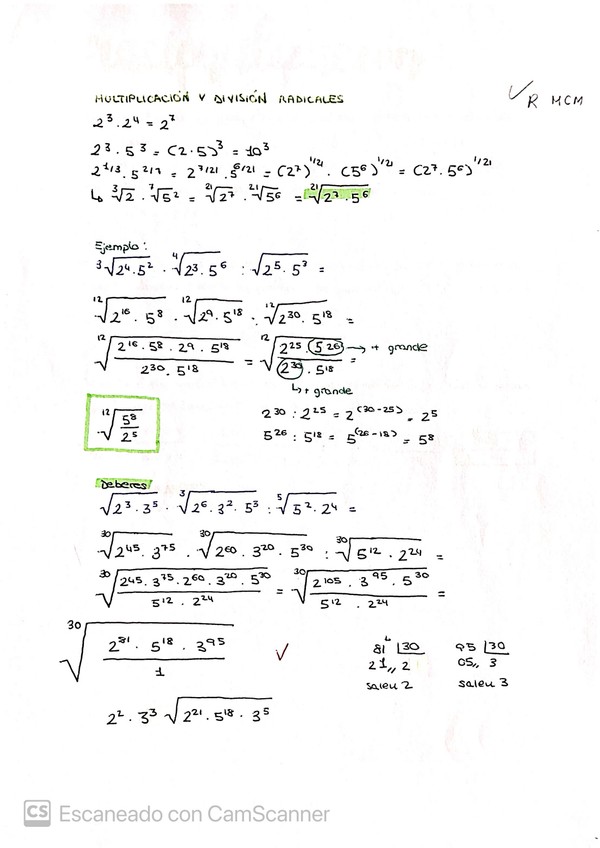 MULTIPLICACIÓN Y DIVISIÓN RADICALES
✓ R MCM
2³ · 2⁴ = 2⁷
2³ · 5³ = (2 · 5)³ = 10³
2^1/3 · 5^2/7 = 2^7/21 · 5^6/21 = (2⁷)^1/21 · (5⁶)^1/21 = (2⁷ · 5⁶)^1/21
↳ ³√2 · ⁷√5² = ²¹√2⁷ · ²¹√5⁶ = ²¹√(2⁷ · 5⁶)
Ejemplo:
³√(2⁴ · 5²) · ⁴√(2³ · 5⁶) : √(2⁵ · 5³) =
¹²√(2¹⁶ · 5⁸) · ¹²√(2⁹ · 5¹⁸) : ¹²√(2³⁰ · 5¹⁸) =
¹²√((2¹⁶ · 5⁸ · 2⁹ · 5¹⁸)/(2³⁰ · 5¹⁸)) = ¹²√((2²⁵ · 5²⁶)/(2³⁰ · 5¹⁸)) =
→ + grande
↳ + grande
¹²√(5⁸/2⁵)
2³⁰ : 2²⁵ = 2^(30-25) = 2⁵
5²⁶ : 5¹⁸ = 5^(26-18) = 5⁸
Deberes
√(2³ · 3⁵) · ³√(2⁶ · 3² · 5³) : ⁵√(5² · 2⁴) =
³⁰√(2⁴⁵ · 3⁷⁵) · ³⁰√(2⁶⁰ · 3²⁰ · 5³⁰) : ³⁰√(5¹² · 2²⁴) =
³⁰√((2⁴⁵ · 3⁷⁵ · 2⁶⁰ · 3²⁰ · 5³⁰)/(5¹² · 2²⁴)) = ³⁰√((2¹⁰⁵ · 3⁹⁵ · 5³⁰)/(5¹² · 2²⁴)) =
³⁰√((2⁸¹ · 5¹⁸ · 3⁹⁵)/1) ✓
81 |30
21,, 2
salen 2
95 |30
05,, 3
salen 3
2² · 3³ √(2²¹ · 5¹⁸ · 3⁵)
CS Escaneado con CamScanner